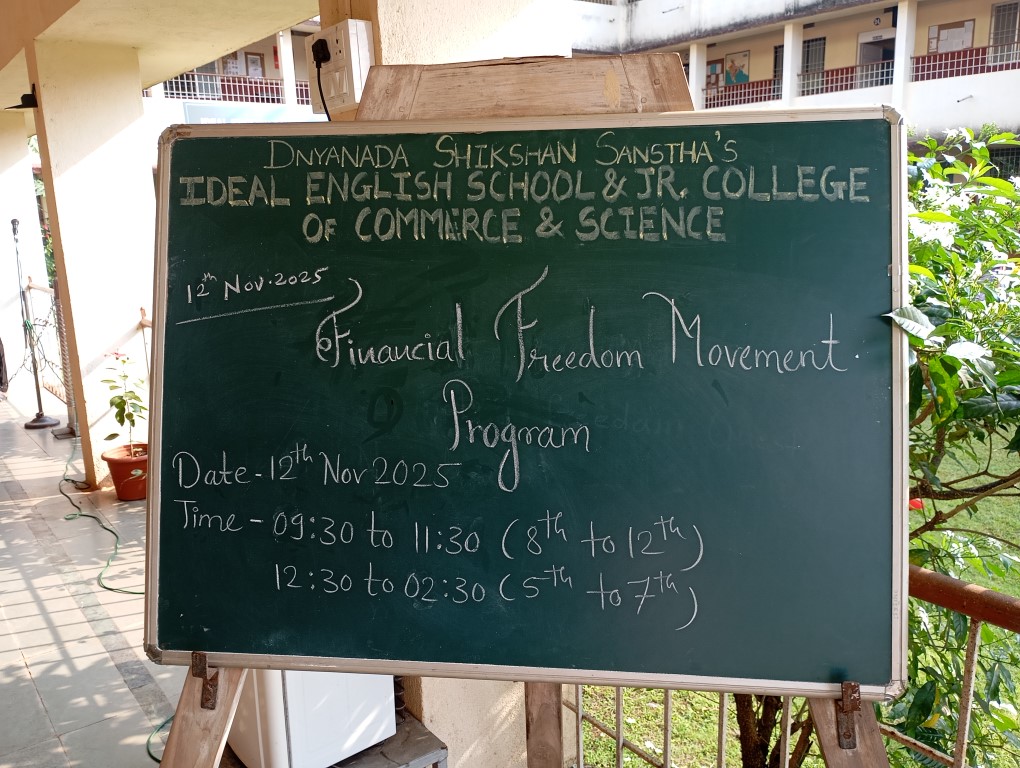 DNYANADA SHIKSHAN SANSTHA'S
IDEAL ENGLISH SCHOOL & JR. COLLEGE
OF COMMERCE & SCIENCE
12th Nov. 2025
Financial Freedom Movement
Program
Date - 12th Nov 2025
Time - 09:30 to 11:30 (8th to 12th)
12:30 to 02:30 (5th to 7th)